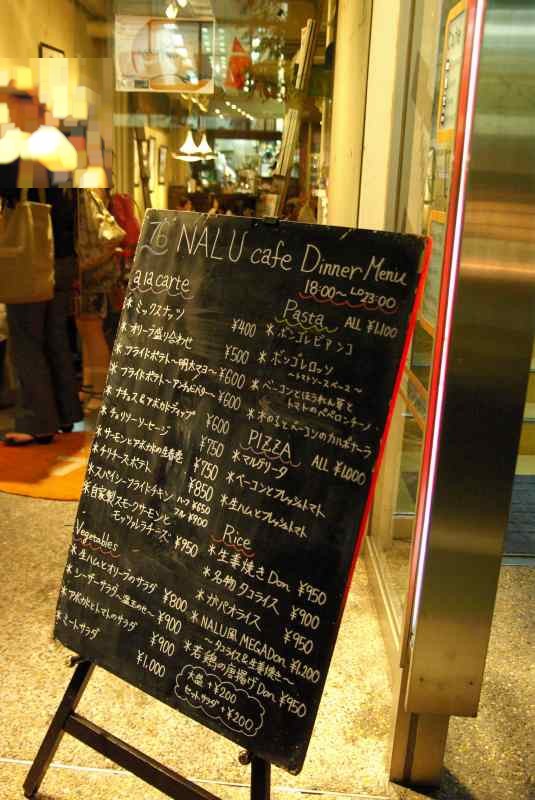 76 NALU cafe Dinner Menu
18:00~ LO23:00
a la carte
*ミックスナッツ ¥400
*オリーブ盛り合わせ ¥500
*フライドポテト~明太マヨ~ ¥600
*フライドポテト~アンチョビバター~ ¥600
*ナチョス&アボカドディップ ¥600
*チョリソーソーセージ ¥750
*サーモンとアボカドの生春巻 ¥750
*チリチーズポテト ¥850
*スパイシーフライドチキン ハーフ¥650
フル¥900
*自家製スモークサーモンと
モッツァレラチーズ ¥950
Vegetables
*生ハムとオリーブのサラダ ¥800
*シーザーサラダ~温玉のせ~ ¥900
*アボカドとトマトのサラダ ¥900
*ミートサラダ ¥1,000
Pasta ALL ¥1,100
*ボンゴレビアンコ
*ボンゴレロッソ
~トマトソースベース~
*ベーコンとほうれん草と
トマトのペペロンチーノ
*きのことベーコンのカルボナーラ
PIZZA ALL ¥1,000
*マルゲリータ
*ベーコンとフレッシュトマト
*生ハムとフレッシュトマト
Rice
*生姜焼きDon ¥950
*名物タコライス ¥900
*ガパオライス ¥950
*NALU風MEGADon ¥1,200
~タコライス&生姜焼き~
*若鶏の唐揚げDon ¥950
大盛り+¥200
セットサラダ+¥200